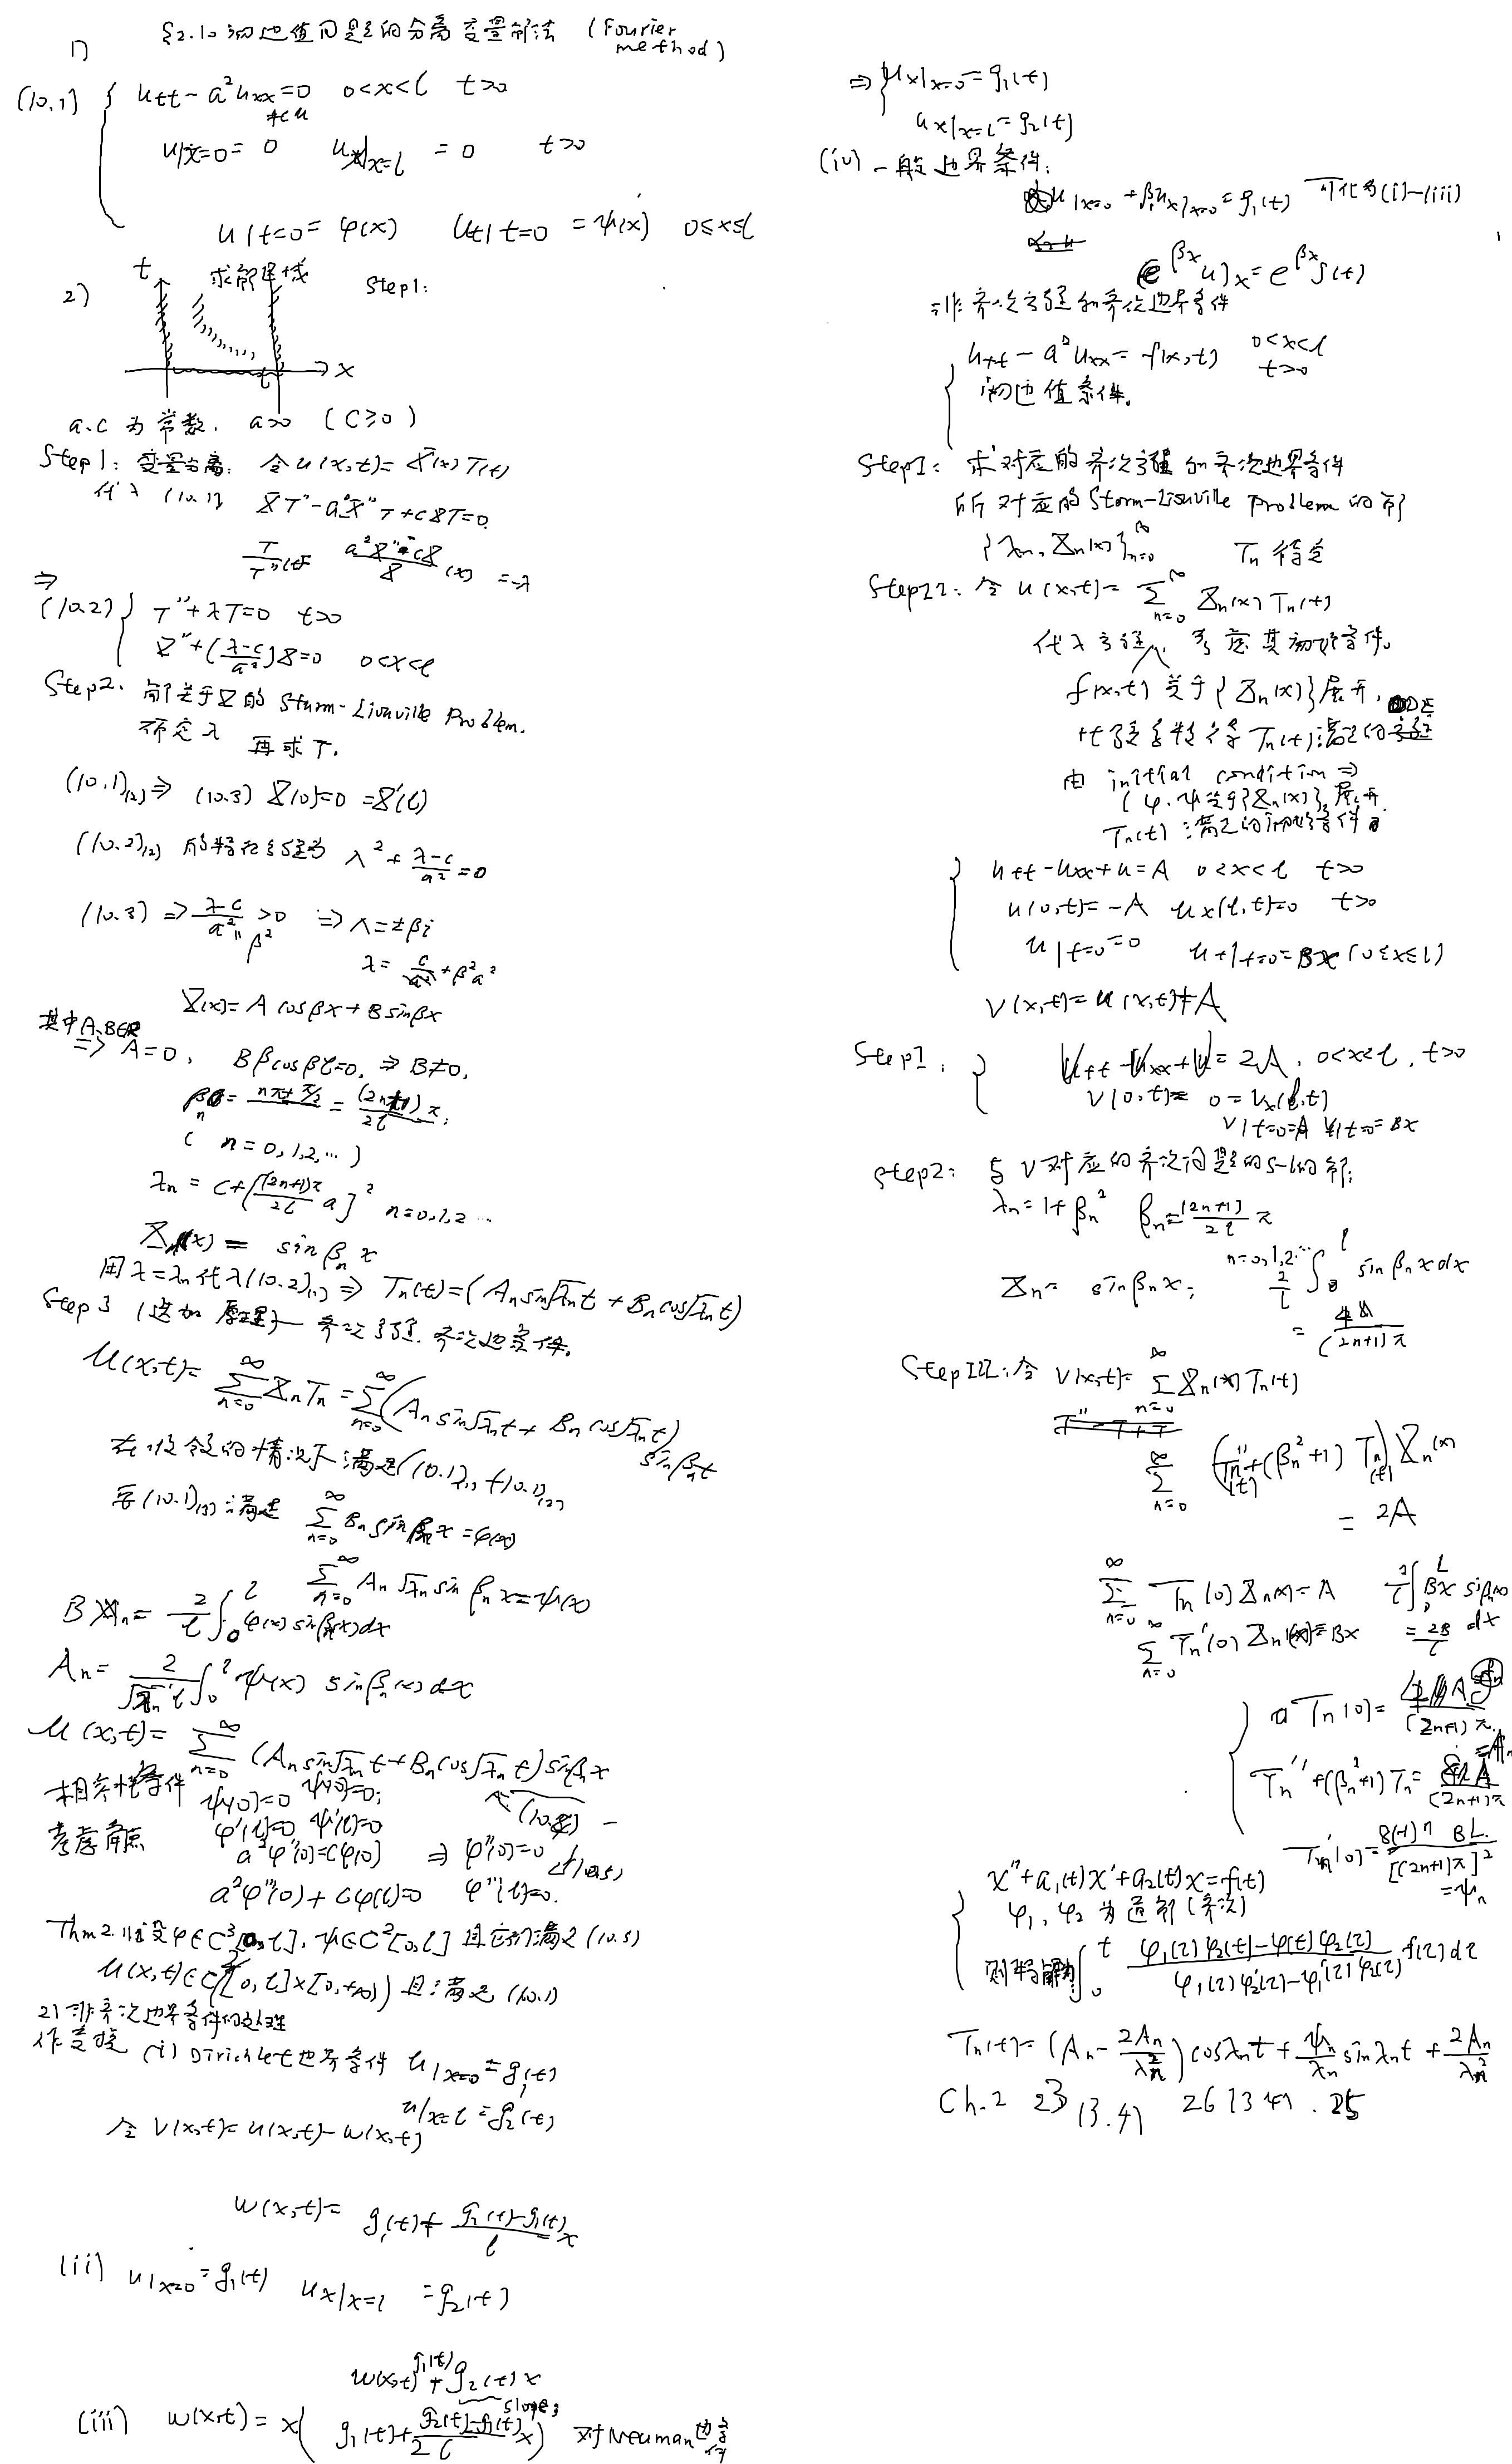 1)
§2.10 初边值问题的分离变量解法 (Fourier method)
(10.1) { u_tt - a²u_xx = 0  0<x<l  t>0
+cu
u|x=0 = 0  u_x|x=l = 0  t>0
u|t=0 = φ(x)  u_t|t=0 = ψ(x)  0≤x≤l
2)
t  求解区域  Step1:
x
a.c 为常数. a>0 (C≥0)
Step1: 变量分离. 令 u(x,t) = X(x)T(t)
代入 (10.1) XT'' - a²X''T + cXT = 0
= -λ
⇒
(10.2) { T'' + λT = 0  t>0
X'' + ((λ-c)/a²)X = 0  0<x<l
Step2. 解关于X的 Sturm-Liouville Problem.
确定λ 再求T.
(10.1)(2) ⇒ (10.3) X(0)=0=X'(l)
(10.2)(2) 的特征方程为 λ² + (λ-c)/a² = 0
(10.3) ⇒ (λ-c)/a² > 0 ⇒ λ = ±βi
β²
X(x) = A cosβx + B sinβx
其中A,B∈R
⇒ A=0, Bβcosβl=0, ⇒ B≠0,
( n=0,1,2,… )
λn = c + [(2n+1)π/2l a]²  n=0,1,2…
Xn(x) = sinβn x
用λ=λn代入(10.2)(1) ⇒ Tn(t) = (An sin√λn t + Bn cos√λn t)
Step 3 (迭加原理)— 齐次方程. 齐次边条件.
u(x,t) = Σ_{n=0}^∞ XnTn = Σ_{n=0}^∞ (An sin√λn t + Bn cos√λn t)
sinβn t
在收敛的情况下满足(10.1)(1), (10.1)(2)
要(10.1)(3)满足 Σ_{n=0}^∞ Bn sinβn x = φ(x)
Σ_{n=0}^∞ An√λn sinβn x = ψ(x)
Bn = 2/l ∫_0^l φ(x) sinβn(x)dx
An = 2/(√λn l) ∫_0^l ψ(x) sinβn(x)dx
u(x,t) = Σ_{n=0}^∞ (An sin√λn t + Bn cos√λn t) sinβn x
相容性条件 ψ(0)=0 ψ(0)=0;
考虑角点 φ'(l)=0 ψ'(l)=0
a²φ''(0)=cφ(0) ⇒ φ''(0)=0
a²φ''(0)+cφ(l)=0  φ''(l)=0.
Thm 2. 设φ∈C³[0,l], ψ∈C²[0,l] 且它们满足(10.5)
u(x,t)∈C²([0,l]×[0,+∞)) 且满足 (10.1)
2) 非齐次边界条件的处理
作变换 (i) Dirichlet边界条件 u|x=0 = g1(t)
u|x=l = g2(t)
令 v(x,t) = u(x,t) - w(x,t)
w(x,t) = g1(t) + (g2(t)-g1(t))/l x
(ii) u|x=0 = g1(t)  u_x|x=l = g2(t)
w(x,t) g1(t) + g2(t)x
slope
(iii) w(x,t) = x( g1(t) + (g2(t)-g1(t))/2l x) 对Neuman边条件
⇒ { u_x|x=0 = g1(t)
u_x|x=l = g2(t)
(iv) 一般边界条件:
u|x=0 + β1u_x|x=0 = g1(t) 可化为(i)-(iii)
(e^{βx}u)_x = e^{βx}g(t)
非齐次方程和齐次边界条件
{ u_tt - a²u_xx = f(x,t)  0<x<l  t>0
初边值条件.
StepI: 求对应的齐次方程和齐次边界条件
所对应的 Storm-Liouville Problem 的解
{λn, Xn(x)}_{n=0}^∞  Tn 待定
StepII: 令 u(x,t) = Σ_{n=0}^∞ Xn(x)Tn(t)
代入方程, 考虑其初始条件.
f(x,t) 关于{Xn(x)}展开,
比较系数得 Tn(t)满足的ODE
由 initial condition ⇒
(φ.ψ关于{Xn(x)}展开.
Tn(t) 满足的初始条件
{ u_tt - u_xx + u = A  0<x<l  t>0
u(0,t) = -A  u_x(l,t)=0  t>0
u|t=0 = 0  u_t|t=0 = Bx (0≤x≤l)
v(x,t) = u(x,t)+A
StepI. { v_tt - v_xx + v = 2A, 0<x<l, t>0
v(0,t) = 0 = v_x(l,t)
v|t=0=A  v_t|t=0=Bx
Step2: 与v对应的齐次问题的S-L的解:
λn = 1+βn²  βn = (2n+1)/2l π
n=0,1,2…
Xn = sinβn x;  2/l ∫_0^l sinβn x dx
= 4/((2n+1)π)
StepIII: 令 v(x,t) = Σ_{n=0}^∞ Xn(x)Tn(t)
Σ_{n=0}^∞ (Tn''(t) + (βn²+1) Tn(t)) Xn(x)
= 2A
Σ_{n=0}^∞ Tn(0)Xn(x) = A  2/l ∫_0^L Bx sinβn x dx
Σ_{n=0}^∞ Tn'(0)Xn(x) = Bx  = 2B/l
{ Tn(0) = 4A/((2n+1)π) = An
Tn'' + (βn²+1)Tn = 8A/((2n+1)π)
Tn'(0) = 8(-1)^n BL/[(2n+1)π]² = ψn
{ x'' + a1(t)x' + a2(t)x = f(t)
φ1, φ2 为通解(齐次)
则特解为 ∫_0^t (φ1(τ)φ2(t) - φ1(t)φ2(τ))/(φ1(τ)φ2'(τ) - φ1'(τ)φ2(τ)) f(τ)dτ
Tn(t) = (An - 2An/λn²) cosλn t + ψn/λn sinλn t + 2An/λn²
Ch.2 23 (3.4) 26 (34) . 25